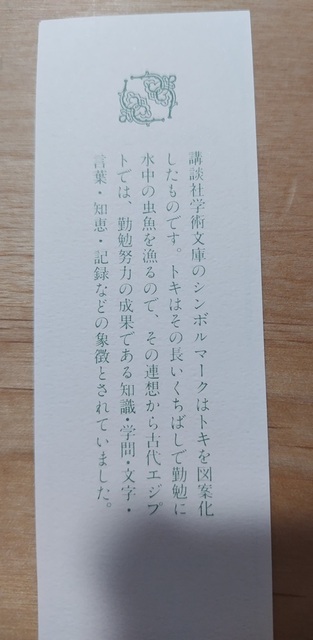 講談社学術文庫のシンボルマークはトキを図案化
したものです。トキはその長いくちばしで勤勉に
水中の虫魚を漁るので、その連想から古代エジプ
トでは、勤勉努力の成果である知識・学問・文字・
言葉・知恵・記録などの象徴とされていました。